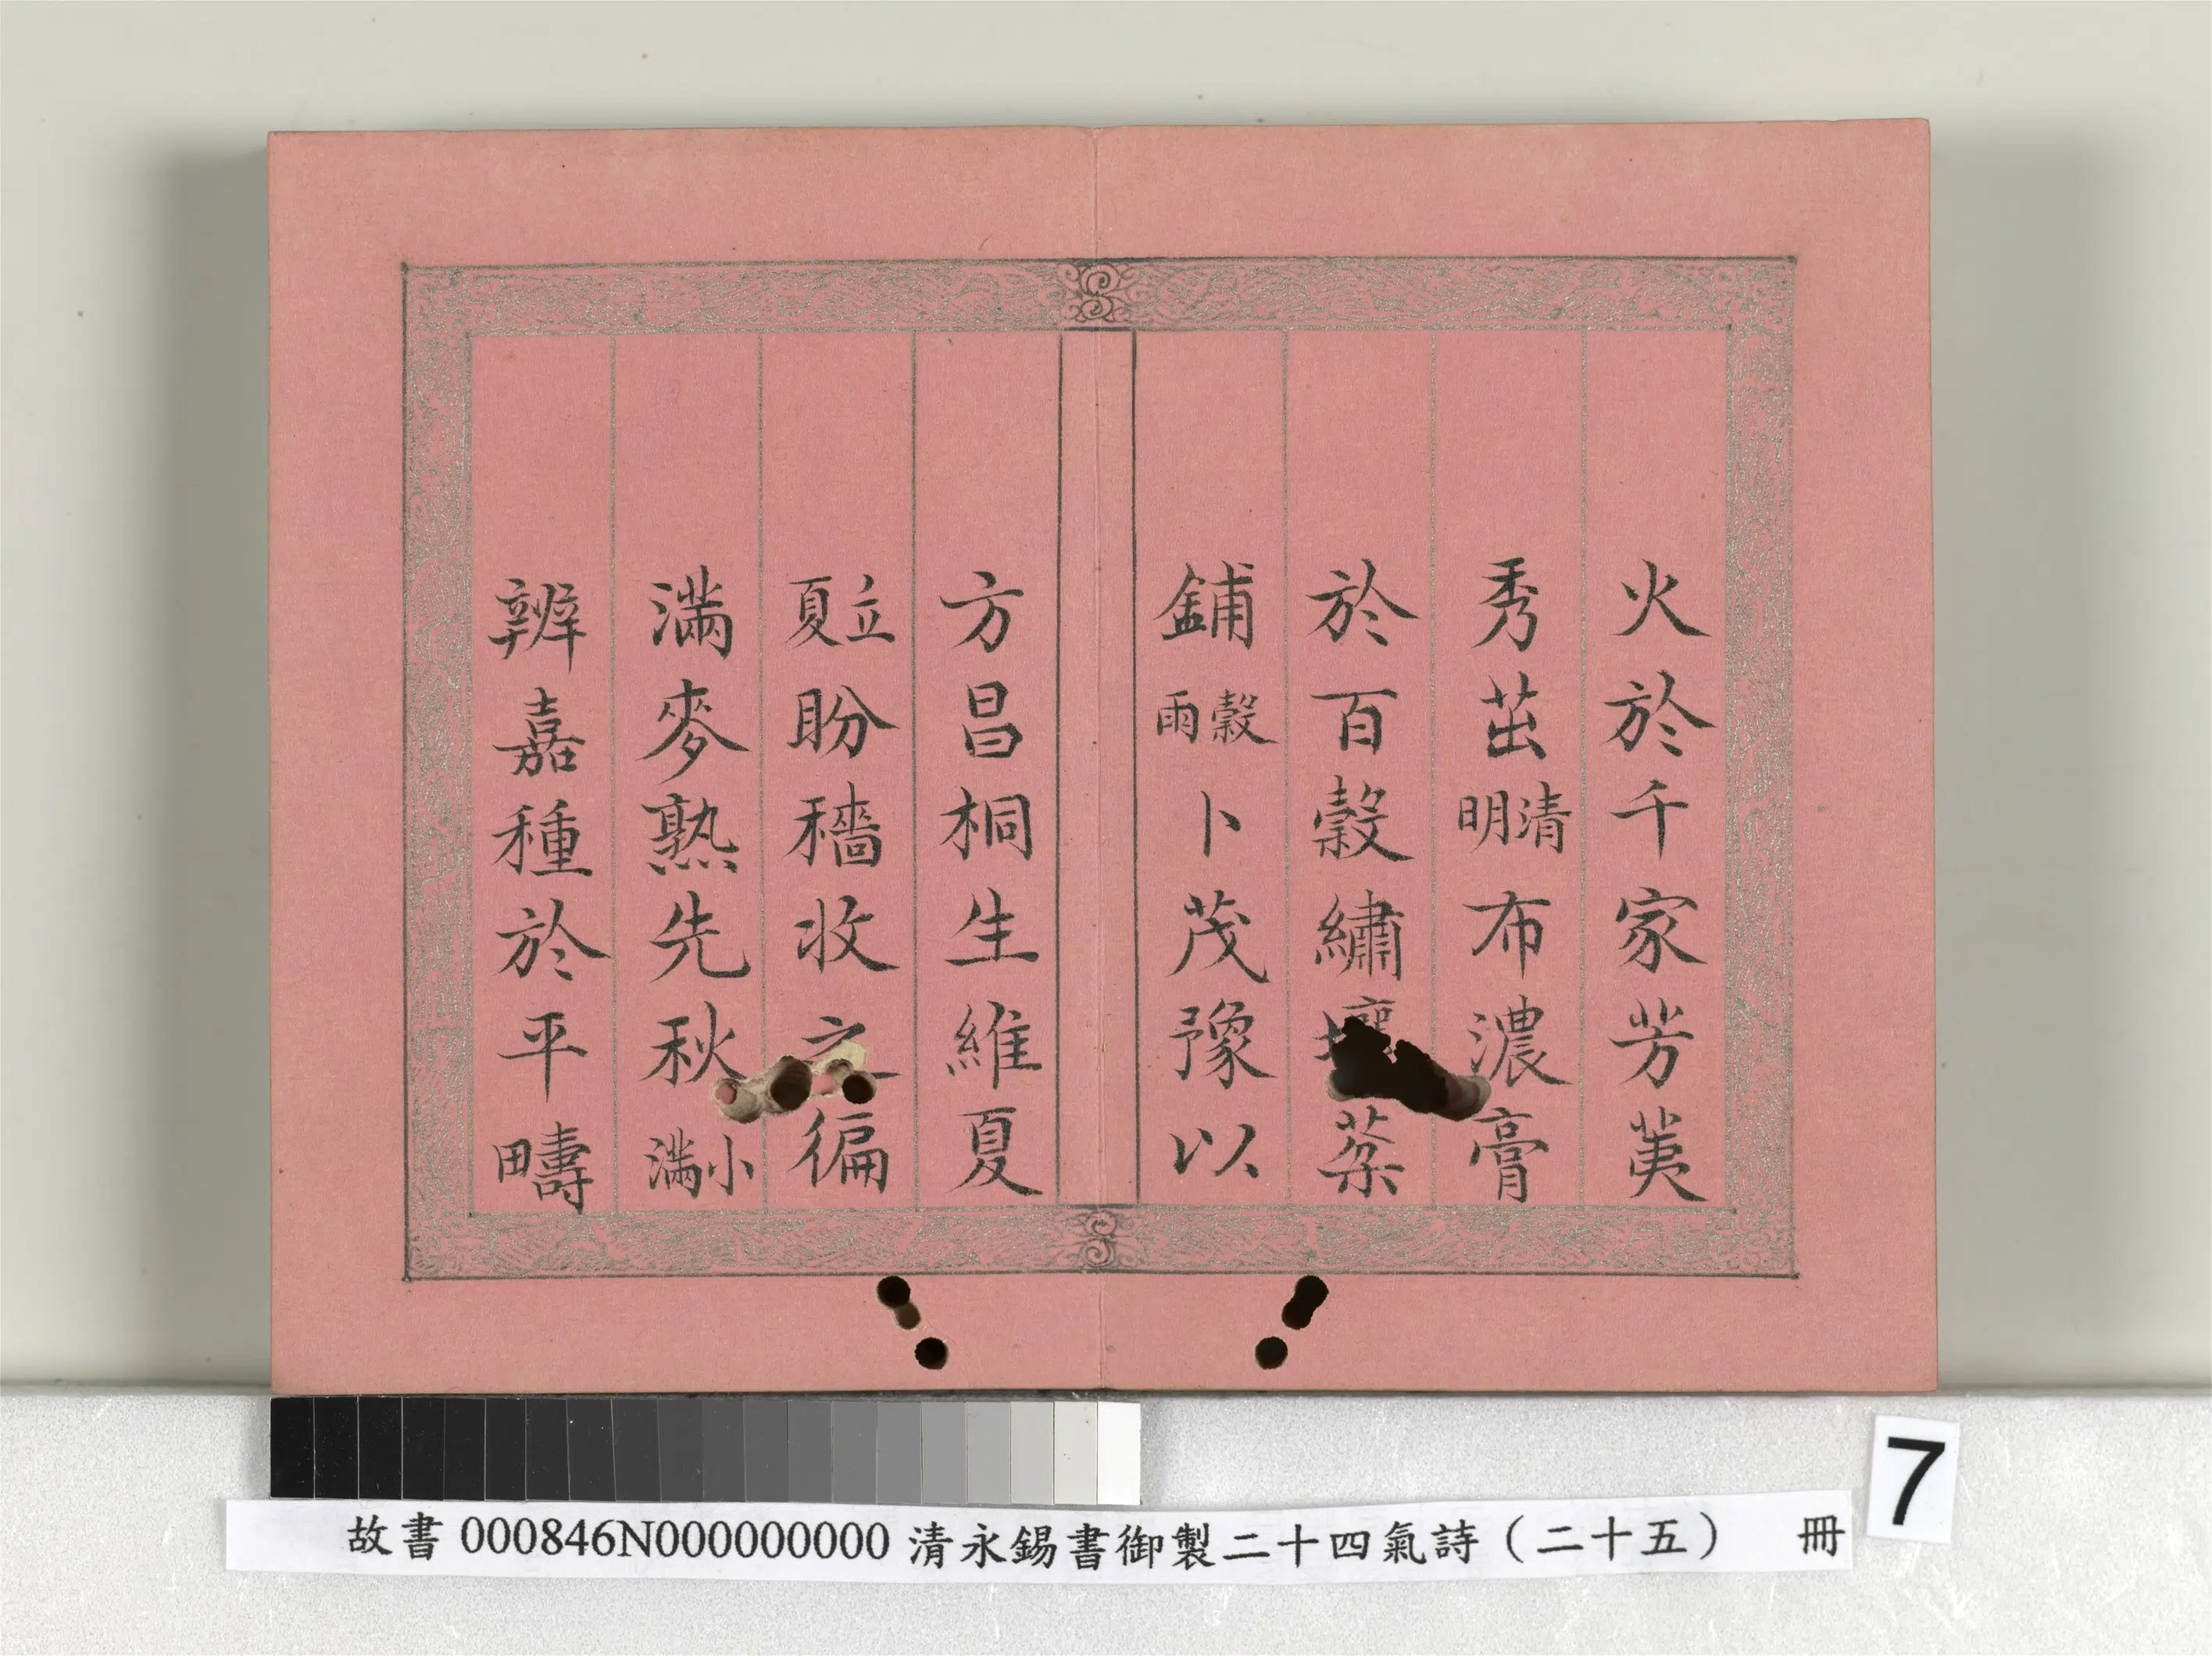 火於千家芳荑
秀茁清明布濃膏
於百穀繡壤棻
鋪穀雨卜茂豫以
方昌桐生維夏
立夏盼穡收之徧
滿麥熟先秋小滿
辨嘉種於平疇
7
故書 000846N000000000 清永錫書御製二十四氣詩（二十五） 冊